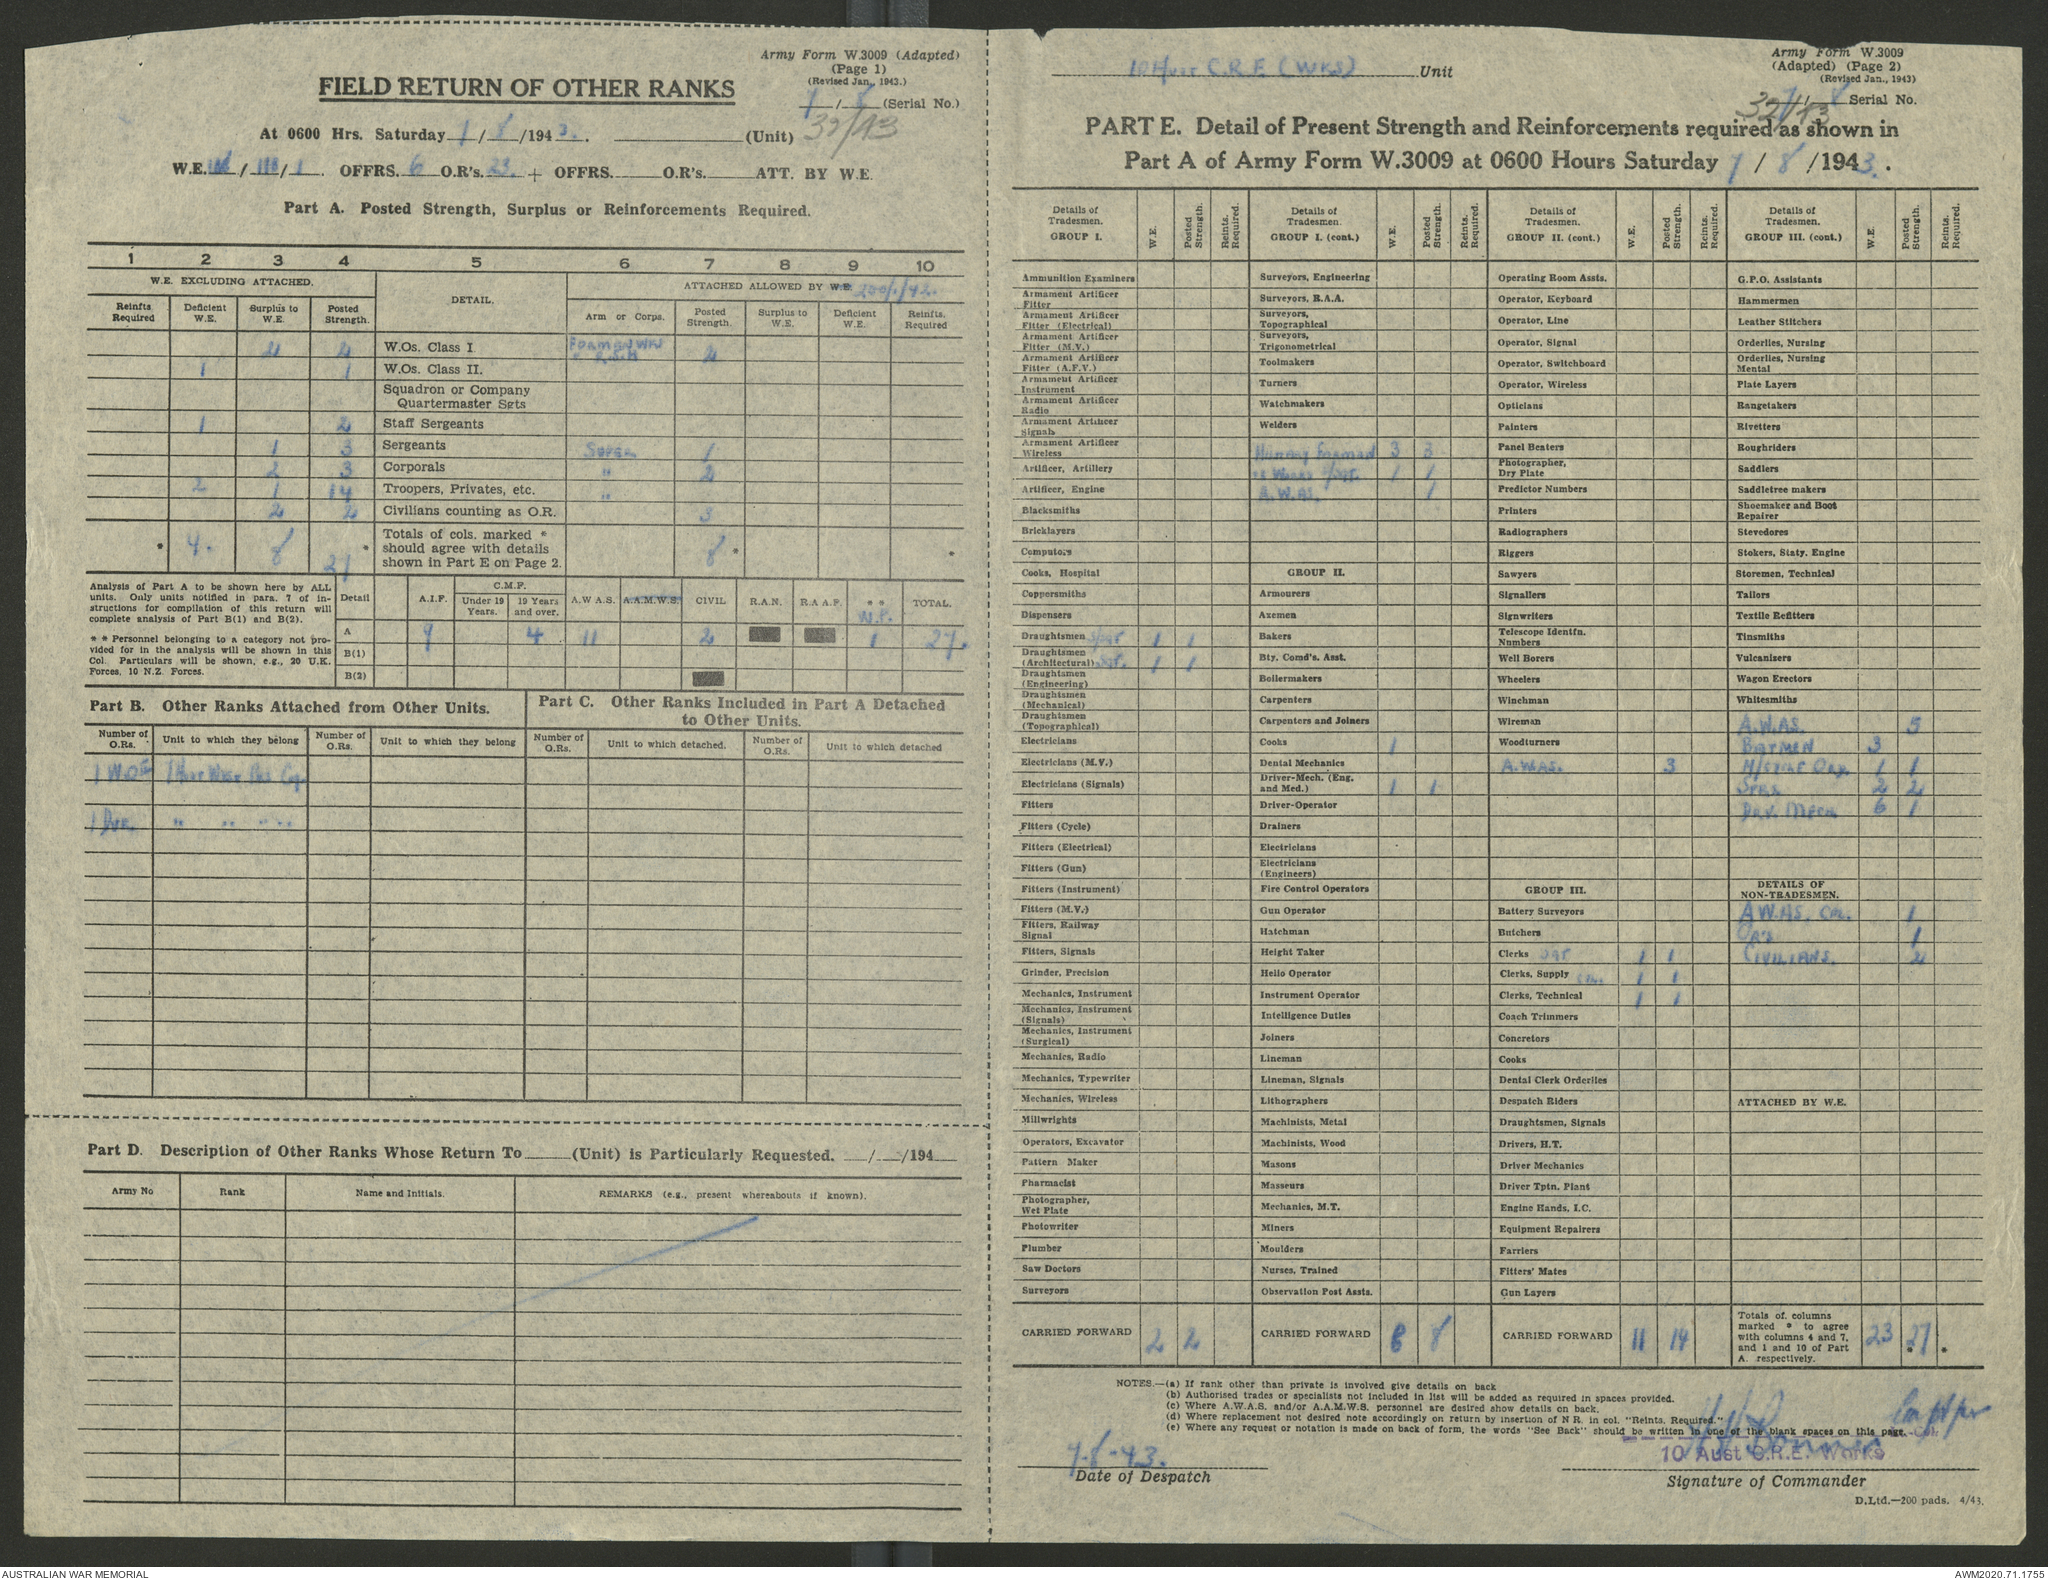 Army Form W.3009 (Adapted)
(Page 1)
(Revised Jan., 1943.)
FIELD RETURN OF OTHER RANKS
7/8 (Serial No.)
At 0600 Hrs. Saturday 7/8/1943. (Unit) 32/43
W.E. / / 1. OFFRS. 6 O.R's. 23. + OFFRS. O.R's. ATT. BY W.E.
Part A. Posted Strength, Surplus or Reinforcements Required.
1 2 3 4 5 6 7 8 9 10
W.E. EXCLUDING ATTACHED. DETAIL. ATTACHED ALLOWED BY W.E.
Reinfts Required Deficient W.E. Surplus to W.E. Posted Strength. Arm or Corps. Posted Strength. Surplus to W.E. Deficient W.E. Reinfts. Required
2 2 W.Os. Class I 2
1 1 W.Os. Class II.
Squadron or Company Quartermaster Sgts
1 2 Staff Sergeants
1 3 Sergeants 1
2 3 Corporals " 2
2 1 14 Troopers, Privates, etc. "
2 2 Civilians counting as O.R. 3
* 4. 8 21 * Totals of cols. marked * should agree with details shown in Part E on Page 2. 8 * *
Analysis of Part A to be shown here by ALL units. Only units notified in para. 7 of instructions for compilation of this return will complete analysis of Part B(1) and B(2).
* * Personnel belonging to a category not provided for in the analysis will be shown in this Col. Particulars will be shown, e.g., 20 U.K. Forces, 10 N.Z. Forces.
Detail A.I.F. C.M.F. Under 19 Years. 19 Years and over. A.W.A.S. A.A.M.W.S. CIVIL R.A.N. R.A.A.F. * * W.P. TOTAL.
A 9 4 11 2 1 27.
B(1)
B(2)
Part B. Other Ranks Attached from Other Units.
Part C. Other Ranks Included in Part A Detached to Other Units.
Number of O.Rs. Unit to which they belong Number of O.Rs. Unit to which they belong Number of O.Rs. Unit to which detached. Number of O.Rs. Unit to which detached
1 W.O
1 Dvr. " " " "
Part D. Description of Other Ranks Whose Return To (Unit) is Particularly Requested. / /194
Army No Rank Name and Initials. REMARKS (e.g., present whereabouts if known).
10 Aust C.R.E (WKS) Unit
Army Form W.3009
(Adapted) (Page 2)
(Revised Jan., 1943)
7/8 Serial No.
32/43
PART E. Detail of Present Strength and Reinforcements required as shown in
Part A of Army Form W.3009 at 0600 Hours Saturday 7/8/1943.
Details of Tradesmen. GROUP I. W.E. Posted Strength. Reints. Required.
Ammunition Examiners
Armament Artificer Fitter
Armament Artificer Fitter (Electrical)
Armament Artificer Fitter (M.V.)
Armament Artificer Fitter (A.F.V.)
Armament Artificer Instrument
Armament Artificer Radio
Armament Artificer Signals
Armament Artificer Wireless
Artificer, Artillery
Artificer, Engine
Blacksmiths
Bricklayers
Computors
Cooks, Hospital
Coppersmiths
Dispensers
Draughtsmen S/Sgt 1 1
Draughtsmen (Architectural) Sgt. 1 1
Draughtsmen (Engineering)
Draughtsmen (Mechanical)
Draughtsmen (Topographical)
Electricians
Electricians (M.V.)
Electricians (Signals)
Fitters
Fitters (Cycle)
Fitters (Electrical)
Fitters (Gun)
Fitters (Instrument)
Fitters (M.V.)
Fitters, Railway Signal
Fitters, Signals
Grinder, Precision
Mechanics, Instrument
Mechanics, Instrument (Signals)
Mechanics, Instrument (Surgical)
Mechanics, Radio
Mechanics, Typewriter
Mechanics, Wireless
Millwrights
Operators, Excavator
Pattern Maker
Pharmacist
Photographer, Wet Plate
Photowriter
Plumber
Saw Doctors
Surveyors
CARRIED FORWARD 2 2
Details of Tradesmen. GROUP I. (cont.) W.E. Posted Strength. Reints. Required.
Surveyors, Engineering
Surveyors, R.A.A.
Surveyors, Topographical
Surveyors, Trigonometrical
Toolmakers
Turners
Watchmakers
Welders
Military Foreman 3 3
" Works S/Sgt. 1 1
A.W.A.S. 1
GROUP II.
Armourers
Axemen
Bakers
Bty. Comd's. Asst.
Boilermakers
Carpenters
Carpenters and Joiners
Cooks 1
Dental Mechanics
Driver-Mech. (Eng. and Med.) 1 1
Driver-Operator
Drainers
Electricians
Electricians (Engineers)
Fire Control Operators
Gun Operator
Hatchman
Height Taker
Helio Operator
Instrument Operator
Intelligence Duties
Joiners
Lineman
Lineman, Signals
Lithographers
Machinists, Metal
Machinists, Wood
Masons
Masseurs
Mechanics, M.T.
Miners
Moulders
Nurses, Trained
Observation Post Assts.
CARRIED FORWARD 8 8
Details of Tradesmen. GROUP II. (cont) W.E. Posted Strength. Reints. Required.
Operating Room Assts.
Operator, Keyboard
Operator, Line
Operator, Signal
Operator, Switchboard
Operator, Wireless
Opticians
Painters
Panel Beaters
Photographer, Dry Plate
Predictor Numbers
Printers
Radiographers
Riggers
Sawyers
Signallers
Signwriters
Telescope Identfn. Numbers
Well Borers
Wheelers
Winchman
Wireman
Woodturners
A.W.A.S. 3
GROUP III.
Battery Surveyors
Butchers
Clerks Sgt 1 1
Clerks, Supply Cpl. 1 1
Clerks, Technical 1 1
Coach Trimmers
Concretors
Cooks
Dental Clerk Orderlies
Despatch Riders
Draughtsmen, Signals
Drivers, H.T.
Driver Mechanics
Driver Tptn. Plant
Engine Hands, I.C.
Equipment Repairers
Farriers
Fitters' Mates
Gun Layers
CARRIED FORWARD 11 14
Details of Tradesmen. GROUP III. (cont.) W.E. Posted Strength. Reints. Required.
G.P.O. Assistants
Hammermen
Leather Stitchers
Orderlies, Nursing
Orderlies, Nursing Mental
Plate Layers
Rangetakers
Rivetters
Roughriders
Saddlers
Saddletree makers
Shoemaker and Boot Repairer
Stevedores
Stokers, Staty. Engine
Storemen, Technical
Tailors
Textile Refitters
Tinsmiths
Vulcanizers
Wagon Erectors
Whitesmiths
A.W.A.S. 5
BATMEN 3
M/CYCLE ORD. 1 1
2 2
DRV. MECH 6 1
DETAILS OF NON-TRADESMEN.
A.W.A.S. CPL. 1
OR'S 1
CIVILIANS. 2
ATTACHED BY W.E.
Totals of columns marked * to agree with columns 4 and 7, and 1 and 10 of Part A. respectively. 23 27.
NOTES.—(a) If rank other than private is involved give details on back
(b) Authorised trades or specialists not included in list will be added as required in spaces provided.
(c) Where A.W.A.S. and/or A.A.M.W.S. personnel are desired show details on back.
(d) Where replacement not desired note accordingly on return by insertion of N R. in col. "Reints. Required."
(e) Where any request or notation is made on back of form, the words "See Back" should be written in one of the blank spaces on this page.
7-8-43.
Date of Despatch
Capt for
10 Aust C.R.E. Works
Signature of Commander
D.Ltd.—200 pads. 4/43.
AUSTRALIAN WAR MEMORIAL
AWM2020.71.1755